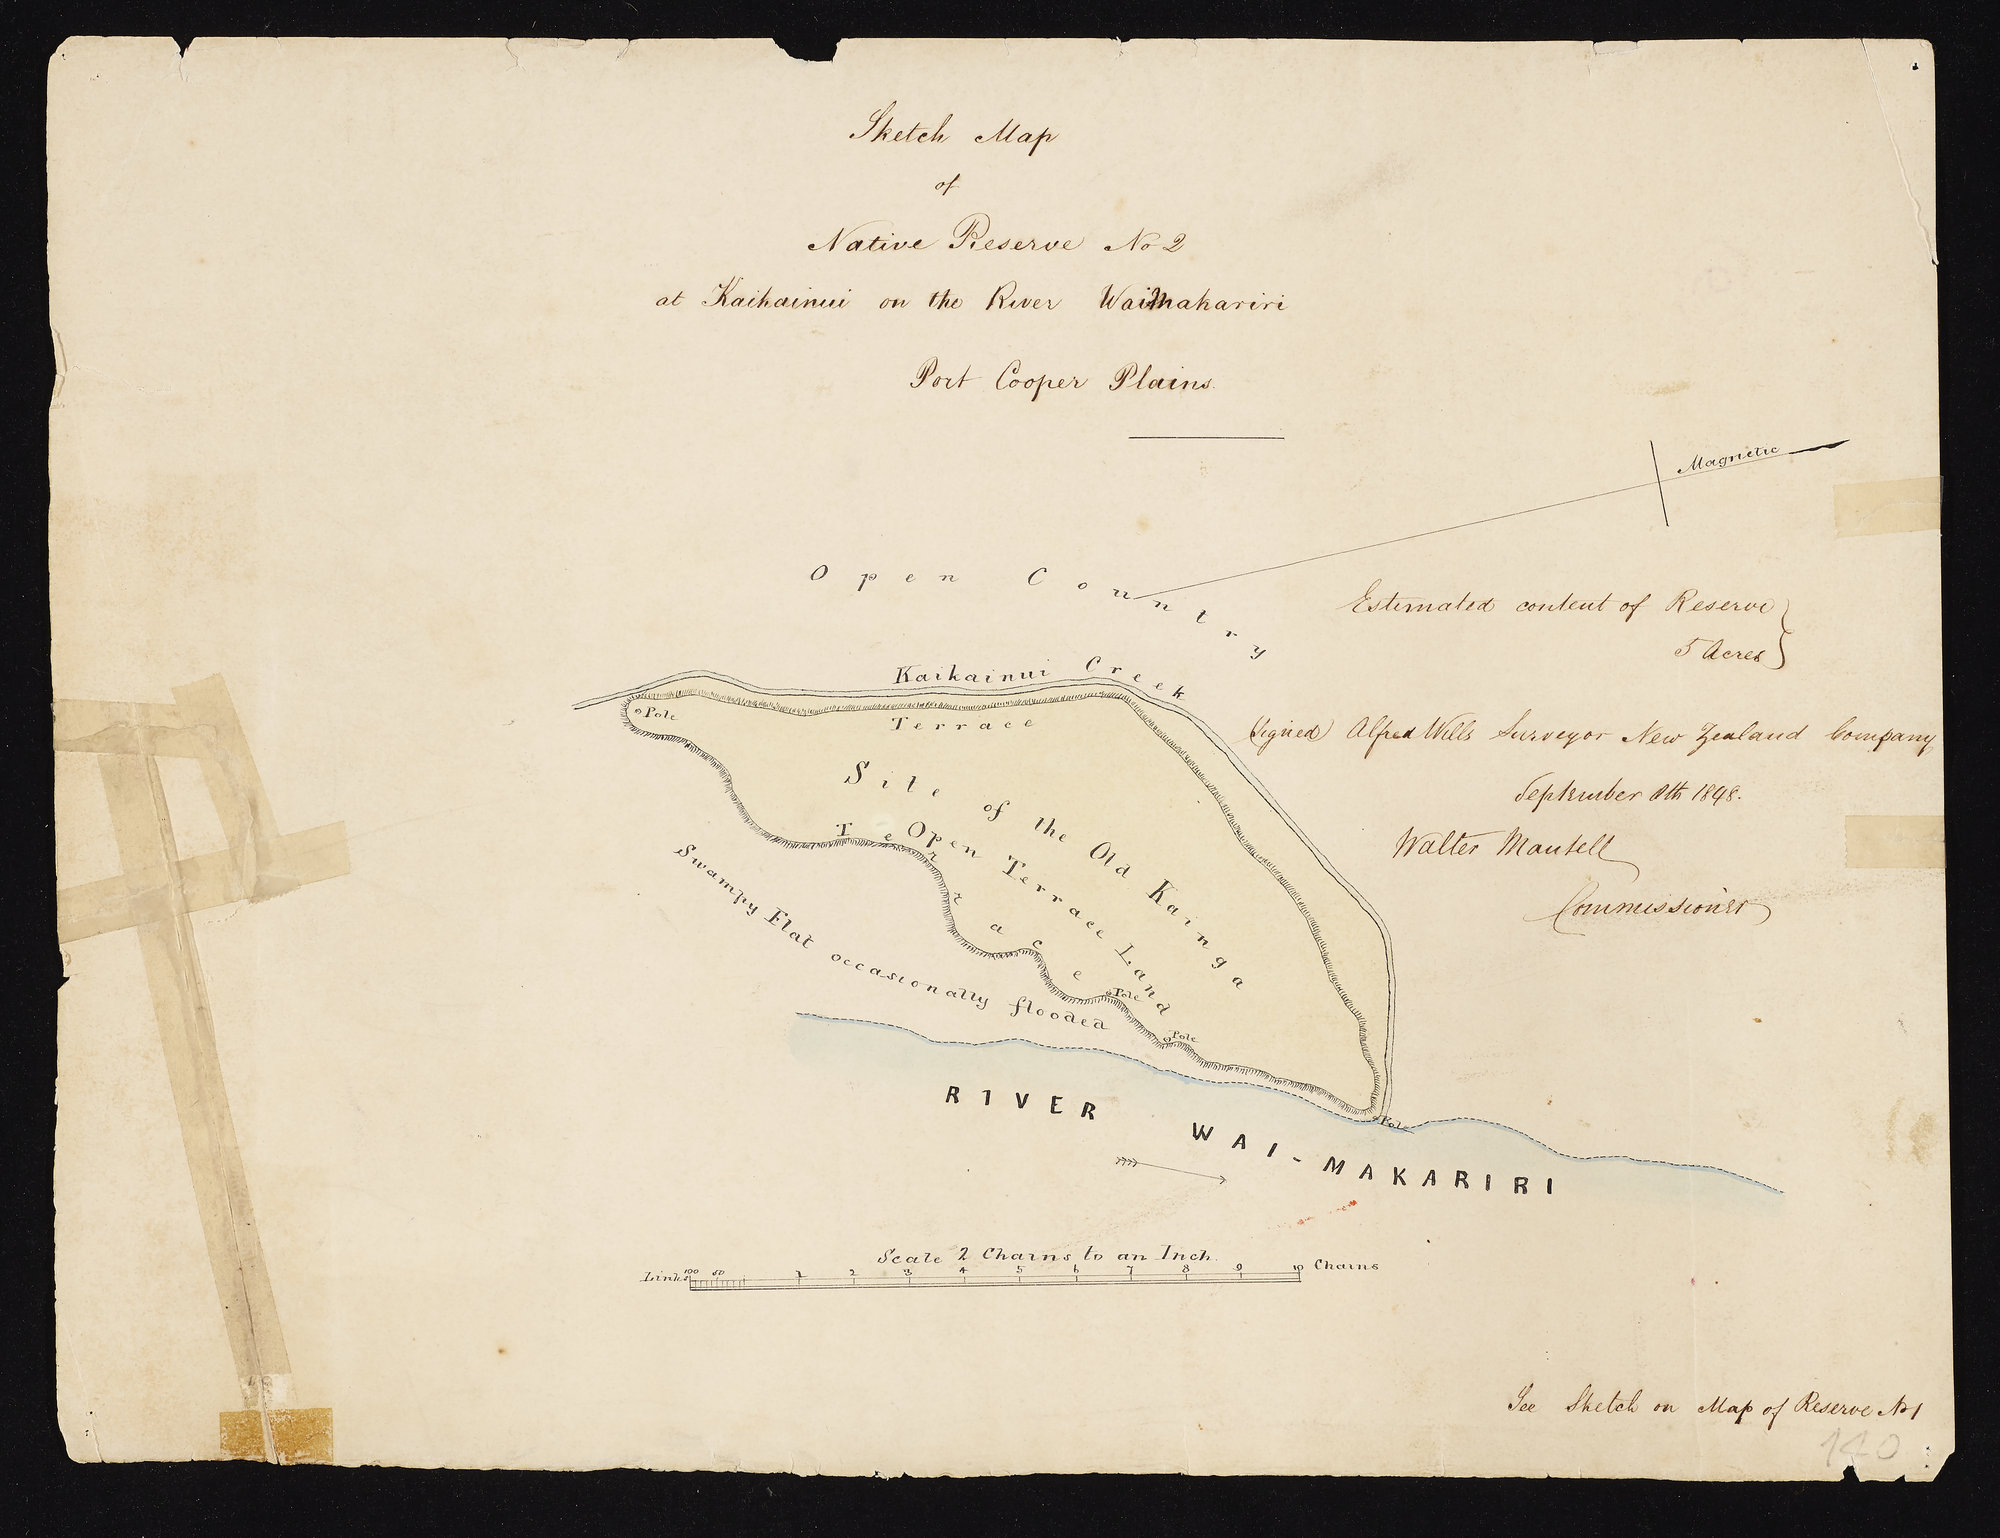 Sketch Map
of
Native Reserve No 2
at Kaikainui on the River Waimakariri
Port Cooper Plains.
Magnetic
Open Country
Estimated content of Reserve
5 Acres
Kaikainui Creek
Pole
Terrace
(Signed) Alfred Wills Surveyor New Zealand Company
September 8th 1848.
Walter Mantell
Commissioner
Site of the Old Kainga
Open Terrace Land
Terrace
Swampy Flat occasionally flooded
Pole
Pole
Pole
RIVER WAI-MAKARIRI
Scale 2 Chains to an Inch.
Links 100 50 1 2 3 4 5 6 7 8 9 10 Chains
See Sketch on Map of Reserve No 1
140